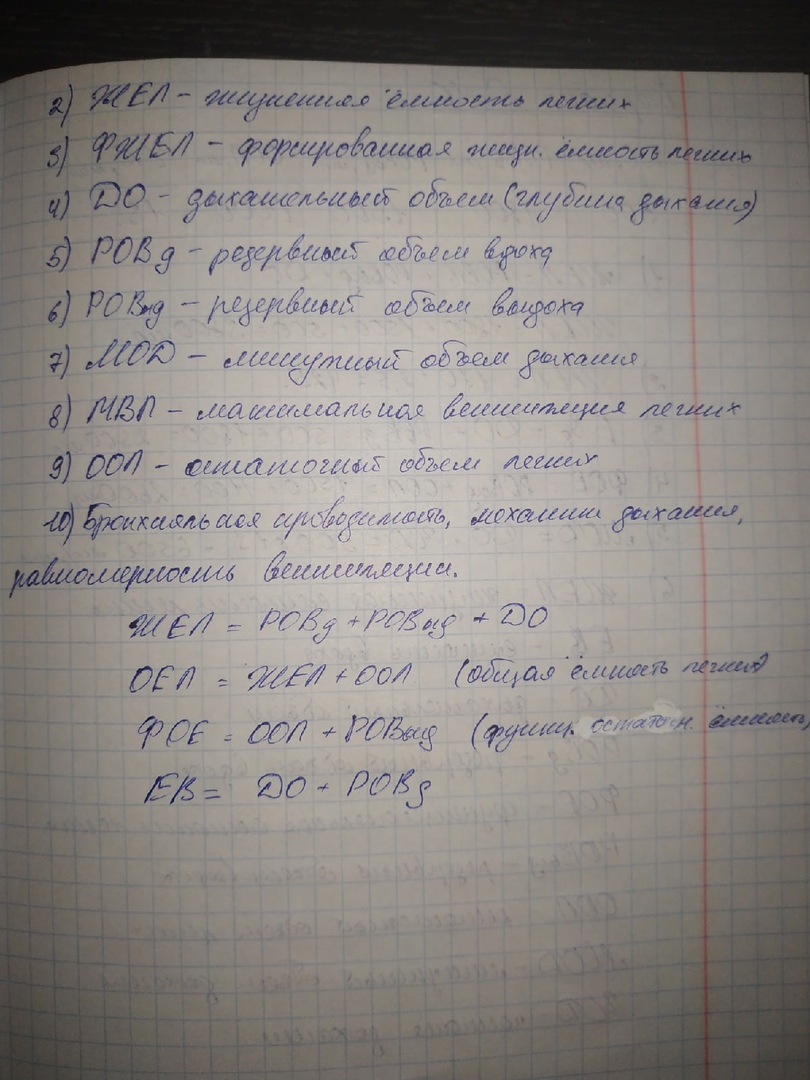 2) ЖЕЛ - жизненная ёмкость легких
3) ФЖЕЛ - форсированная жизн. ёмкость легких
4) ДО - дыхательный объем (глубина дыхания)
5) РОВд - резервный объем вдоха
6) РОВыд - резервный объем выдоха
7) МОД - минутный объем дыхания
8) МВЛ - максимальная вентиляция легких
9) ООЛ - остаточный объем легких
10) Бронхиальная проводимость, механики дыхания,
равномерность вентиляции.
ЖЕЛ = РОВд + РОВыд + ДО
ОЕЛ = ЖЕЛ + ООЛ (общая ёмкость легких)
ФОЕ = ООЛ + РОВыд (функц. остаточн. ёмкость)
ЕВ = ДО + РОВд